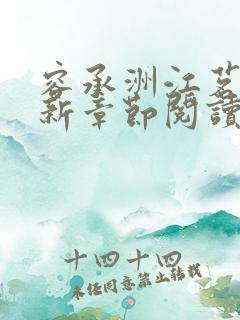 容承洲江茗
新章節閱讀
十四十四
未经同意禁止转载